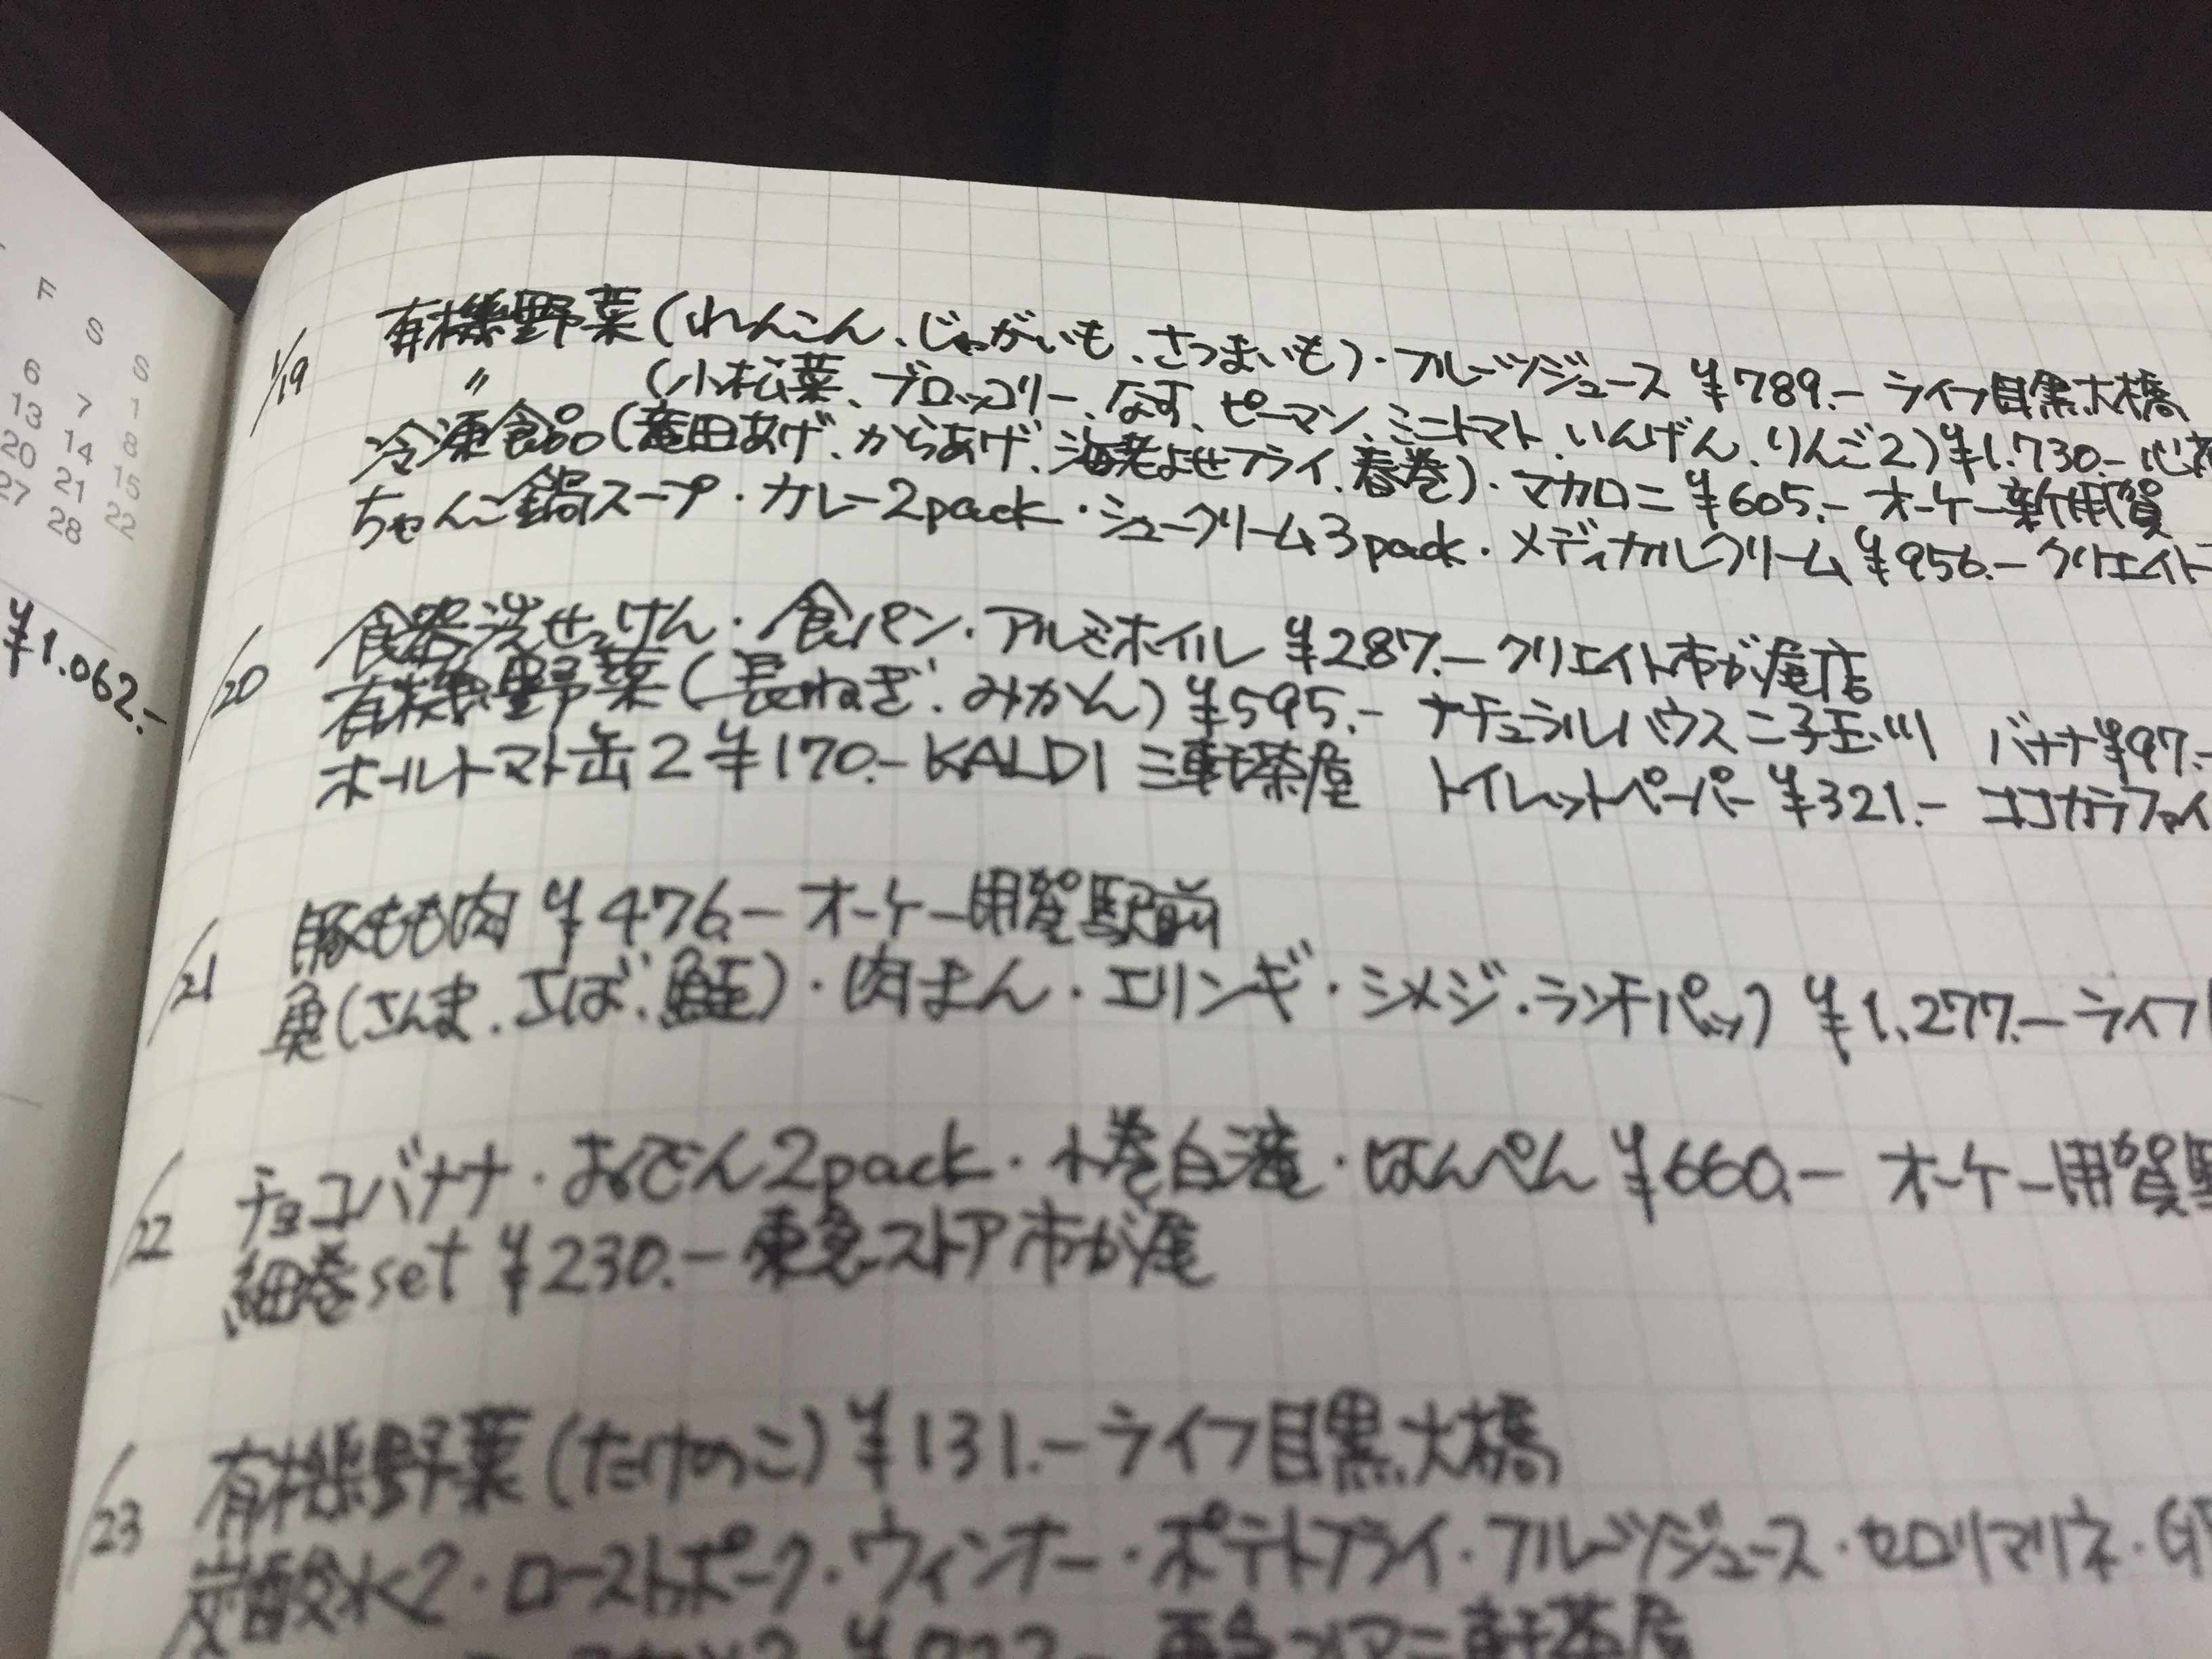 F
S
S
6
7
1
13
14
8
20
21
15
27
28
22
¥1.062.-
1/19
有機野菜(れんこん、じゃがいも、さつまいも)・フルーツジュース ¥789.- ライフ目黒大橋
〃 (小松菜、ブロッコリー、なす、ピーマン、ミニトマト、いんげん、りんご2)¥1.730.-
冷凍食品(竜田あげ、からあげ、海老よせフライ、春巻)・マカロニ ¥605.- オーケー新用賀
ちゃんこ鍋スープ・カレー2pack・シュークリーム3pack・メディカルクリーム ¥956.- クリエイト
/20
食器洗せっけん・食パン・アルミホイル ¥287.- クリエイト市が尾店
有機野菜(長ねぎ、みかん) ¥595.- ナチュラルハウス二子玉川 バナナ¥97.-
ホールトマト缶2 ¥170.- KALDI 三軒茶屋 トイレットペーパー ¥321.- ココカラファイ
/21
豚もも肉 ¥476.- オーケー用賀駅前
魚(さんま、さば、鮭)・肉まん・エリンギ・シメジ・ランチパック ¥1,277.- ライフ
/22
チョコバナナ・おでん2pack・小巻白滝・はんぺん ¥660.- オーケー用賀
細巻set ¥230.- 東急ストア市が尾
/23
有機野菜(たけのこ) ¥131.- ライフ目黒大橋
炭酸水2・ローストポーク・ウィンナー・ポテトフライ・フルーツジュース・セロリマリネ・
三軒茶屋